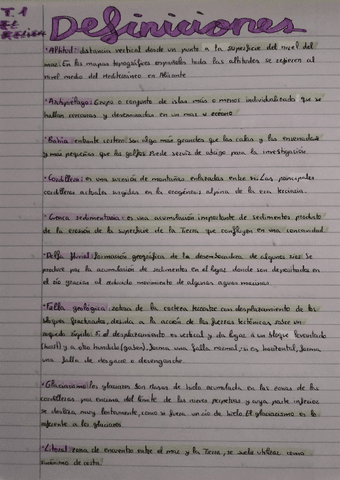 T. 1
EL
RELIEVE
Definiciones
• Altitud: distancia vertical desde un punto a la superficie del nivel del
mar. En los mapas topográficos españoles toda las altitudes se refieren al
nivel medio del Mediterráneo en Alicante
• Archipiélago: Grupo o conjunto de islas más o menos individualizada que se
hallan cercanas y denominadas en un mar u océano
• Bahía: entrante costero: son algo más grandes que las calas y las ensenadas
y más pequeñas que los golfos. Puede servir de abrigo para la
• Cordilleras: es una sucesión de montañas enlazadas entre sí. Las principales
cordilleras actuales surgidas en la orogénesis alpina de la era terciaria.
• Cuenca sedimentaria: es una acumulación importante de sedimentos producto
de la erosión de la superficie de la Tierra que confluyen en una concavidad
• Delta fluvial: formación geográfica de la desembocadura de algunos ríos. Se
produce por la acumulación de sedimentos en el lugar donde son depositados en
el río gracias al reducido movimiento de algunas aguas marinas.
• Falla geológica: roturas de la corteza terrestre con desplazamiento de los
bloques fracturados, debida a la acción de las fuerzas tectónicas sobre un
rígido. Si el desplazamiento es vertical y da lugar a un bloque levantado
(horst) y a otro hundido (graben), forma una falla normal; si es horizontal, forma
una falla de desgarre o desenganche.
• Glaciarismo: los glaciares son masas de hielo acumulada en las zonas de las
cordilleras por encima del límite de las nieves perpetuas y cuya parte inferior
se desliza muy lentamente, como si fuera un río de hielo. El glaciarismo es lo
referente a los glaciares.
• Litoral: zona de encuentro entre el mar y la Tierra, se suele utilizar como
sinónimo de costa.